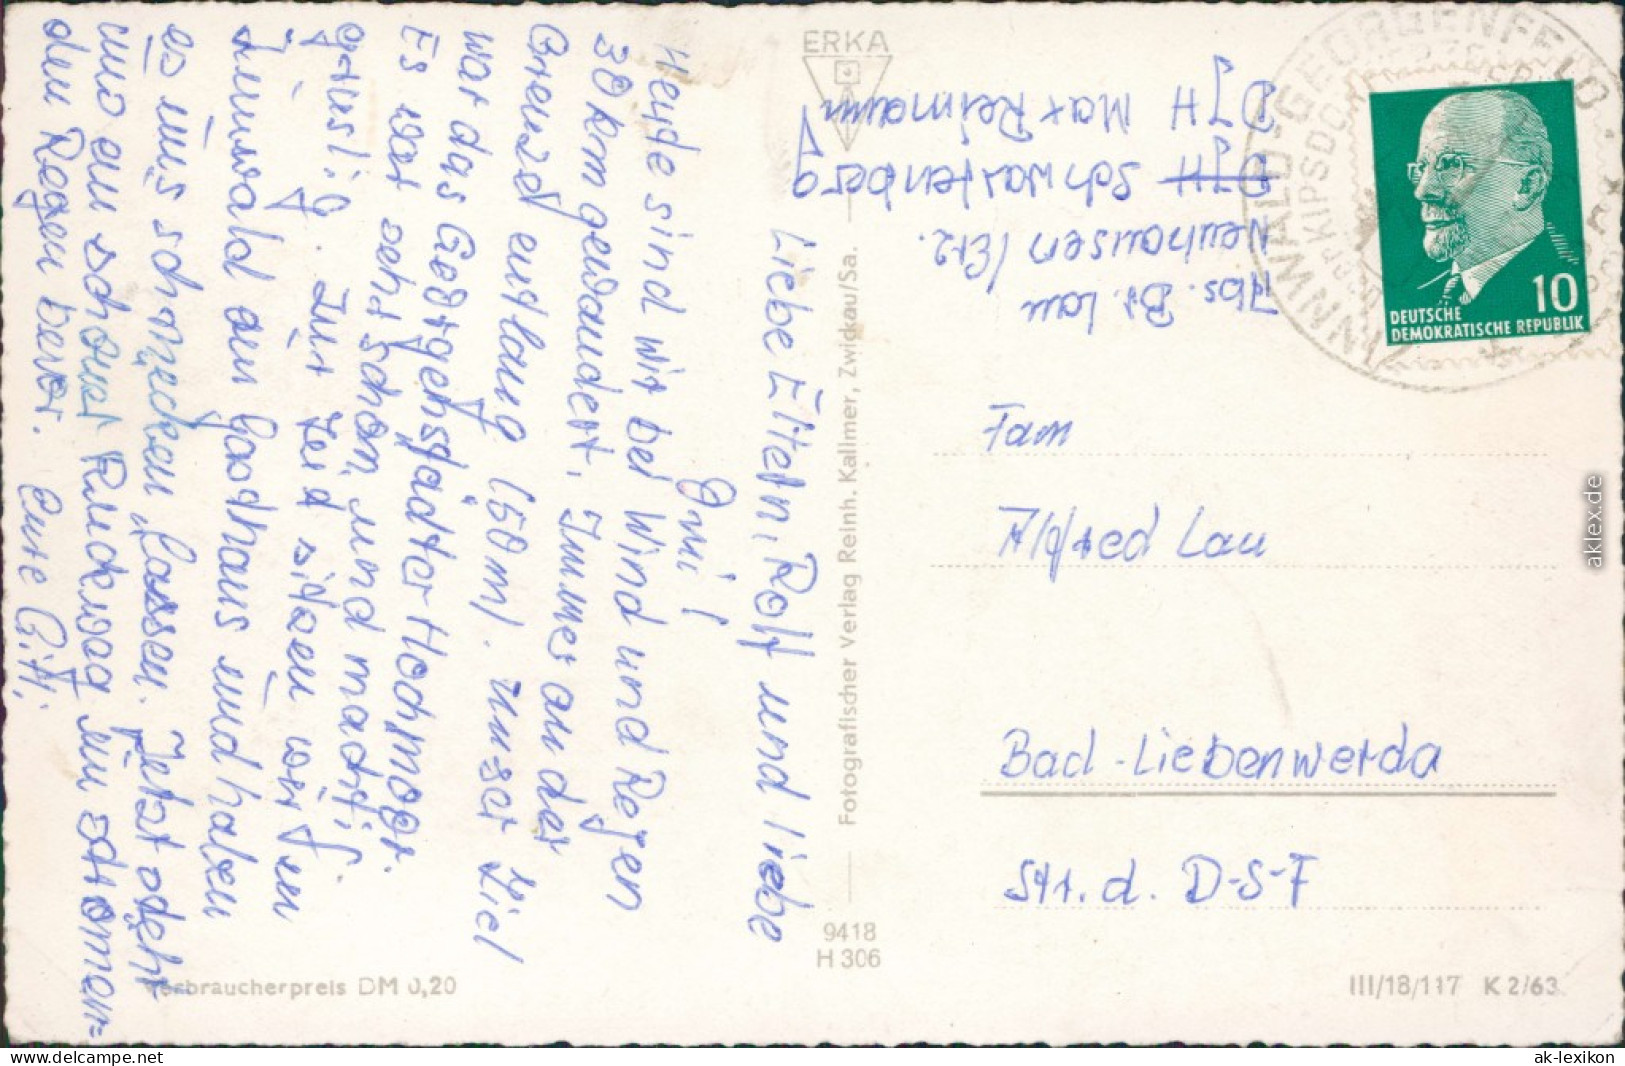 Liebe Eltern, Rolf und liebe
Omi!
Heute sind wir bei Wind und Regen
30 km gewandert. Immer an der
Grenze entlang (50 m). Unser Ziel
war das Georgenfelder Hochmoor.
Es war sehr schön und
gruslig. Zur Zeit sitzen wir in
Zinnwald in Gasthaus und haben
es uns schmecken lassen. Jetzt geht
und ein schöner Rückweg im strömen=
den Regen bevor. Eure Gitti
ERKA
Fotografischer Verlag Reinh. Kallmer, Zwickau/Sa.
9418
H 306
Verbraucherpreis DM 0,20
III/18/117 K 2/63
Abs. Br. Lau
Neuhausen /Erz.
DJH Schwartenberg
DJH Max Reimann
ZINNWALD-GEORGENFELD
KIPSDORF
10
DEUTSCHE
DEMOKRATISCHE REPUBLIK
Fam
Alfred Lau
Bad-Liebenwerda
Str. d. D-S-F
aklex.de
www.delcampe.net
ak-lexikon